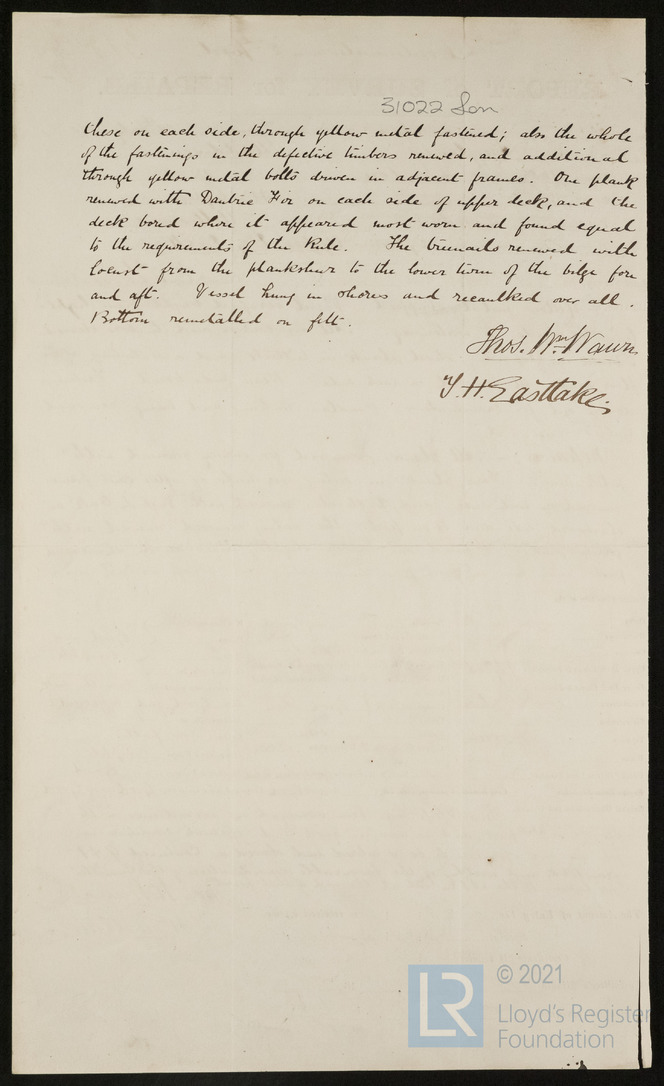 31022 Lon
these on each side, through yellow metal fastened; also the whole
of the fastenings in the defective timbers renewed, and additional
through yellow metal bolts driven in adjacent frames. One plank
renewed with Dantzic Fir on each side of upper deck, and the
deck bored where it appeared most worn and found equal
to the requirements of the Rule. The treenails renewed with
locust from the planksheer to the lower turn of the bilge fore
and aft. Vessel hung in shores and recaulked over all.
Bottom remetalled on felt.
Thos. Wm Wawn
T. H. Eastlake
LR
© 2021
Lloyd's Register
Foundation